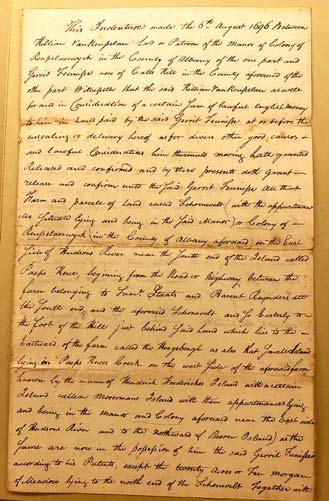 This Indenture made the 6th August 1696 Between
Killian VanRenselaer Lord or Patroon of the Manor of Colony of
Renselaerwyck in the County of Albany of the one part and
Gerrit Teunise now of Catts Kill in the County aforesaid of the
other part Witnesseth that the said Killian VanRenselaer as well
for and in Consideration of a certain Sum of lawful english money
to him in hand paid by the said Gerrit Teunise at or before the
ensealing or delivery hereof as for divers other good causes
and lawful Considerations him thereunto moving hath granted
Released and confirmed and by these presents doth grant
release and confirm unto the said Gerrit Teunise All that
Farm and parcele of land called (with the appurtenan
ces) Situated lying and being in the said Manor or Colony of
Renselaerwyck in the County of Albany aforesaid on the East
side of Hudsons River near the South end of the Island called
Paeps Knee, begining from the Road or highway between the
farm belonging to Saml. Staats and Barent Reynders att
the South end, and the aforesaid and So Easterly to
the foot of the Hill just behind said land which lies to the
Eastward of the farm called the as also that Small Island
lying in Paeps Knees Creek on the west Side of the aforesaid farm
known by the name of Hendrick Fredericks Island with a certain
Island called Island with their appurtenances lying
and being in the Manor and Colony aforesaid near the East side
of Hudsons River and to the northward of Bever Island) as the
Same are now in the possession of him the said Gerrit Teunise
according to his Patent, except the twenty Acres or Ten morgan
of Meadow lying to the north end of the Together with